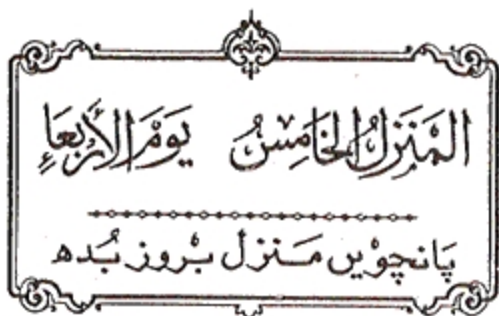 المَنزَلُ الخَامِسُ يَومَ الأَربعَاءِ
پَانچوْیں مَنزل بْروز بُدھ